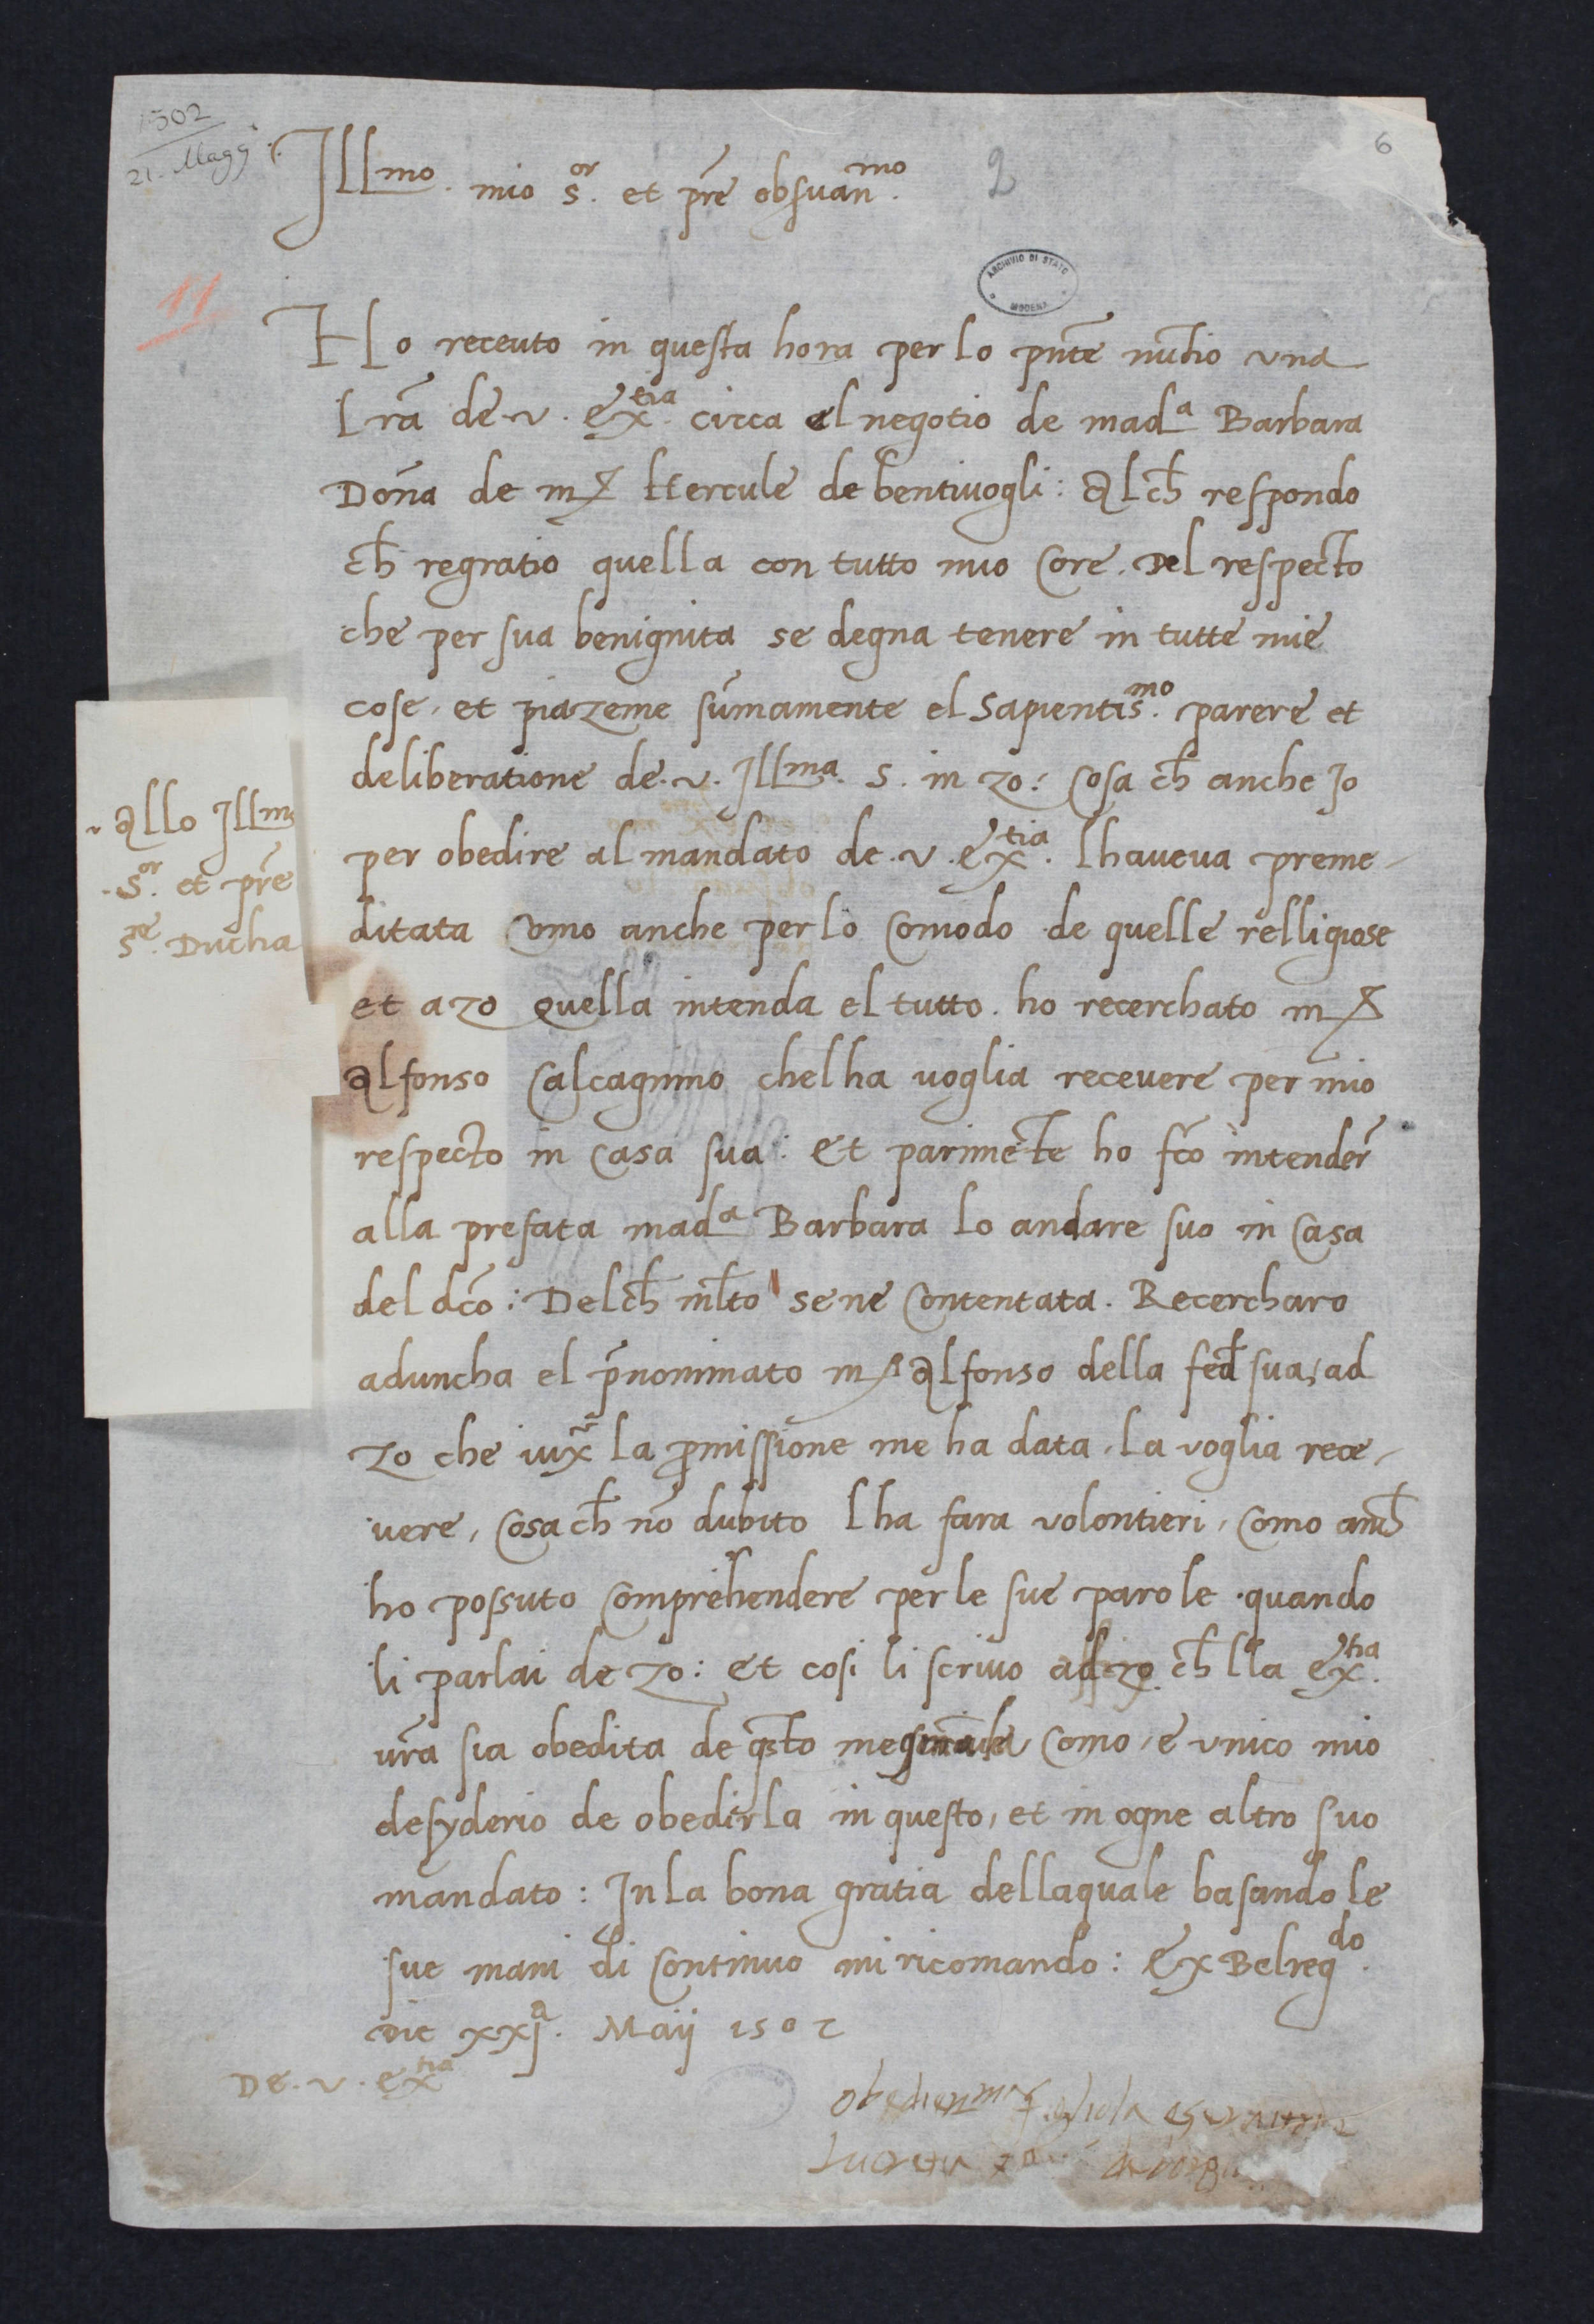 1502
21. Magg.
6
2
Ill.mo mio S.or et pr̃e obs̃uan.mo
ARCHIVIO DI STATO
MODENA
11
Ho receuto in questa hora per lo pñte nũtio vna
lrã de .v. ex.tia circa el negotio de mad.a Barbara
Doña de m̃ Hercule de bentiuogli: Al ch̃ respondo
ch̃ regratio quella con tutto mio Core. Del respecto
che per sua benignita se degna tenere in tutte mie
cose, et piazeme sũmamente el Sapientis.mo parere et
deliberatione de .v. Ill.ma S. in zo: Cosa ch̃ anche Io
per obedire al mandato de .v. ex.tia lhaueua preme-
ditata Como anche per lo Comodo de quelle relligiose
et azo quella intenda el tutto. ho recerchato m̃
Alfonso Calcagnino chel ha uoglia receuere per mio
respecto in Casa sua: Et parimẽte ho fc̃o intender̃
alla prefata mad.a Barbara lo andare suo in Casa
del dc̃o: Del ch̃ ml̃to se ne Contentata. Recercharo
aduncha el p̃nominato m̃ Alfonso della fed̃ sua, ad
zo che iux̃ la ꝓmissione me ha data, la voglia rece-
uere, Cosa ch̃ nõ dubito lha fara volontieri, Como anch̃
ho possuto Comprehendere per le sue parole quando
li parlai de zo: et cosi li scriuo adizo ch̃ lla ex.tia
ur̃a sia obedita de q̃sto Como, e vnico mio
desyderio de obedirla in questo, et in ogne altro suo
mandato: In la bona gratia dellaquale basando le
sue mani di Continuo mi ricomando: Ex Belreg.do
Die xxj.a Maij 1502
De .v. ex.tia
obedien.ma figliola
Lucretia
Allo Ill.mo
S.or et pr̃e
S.re Ducha